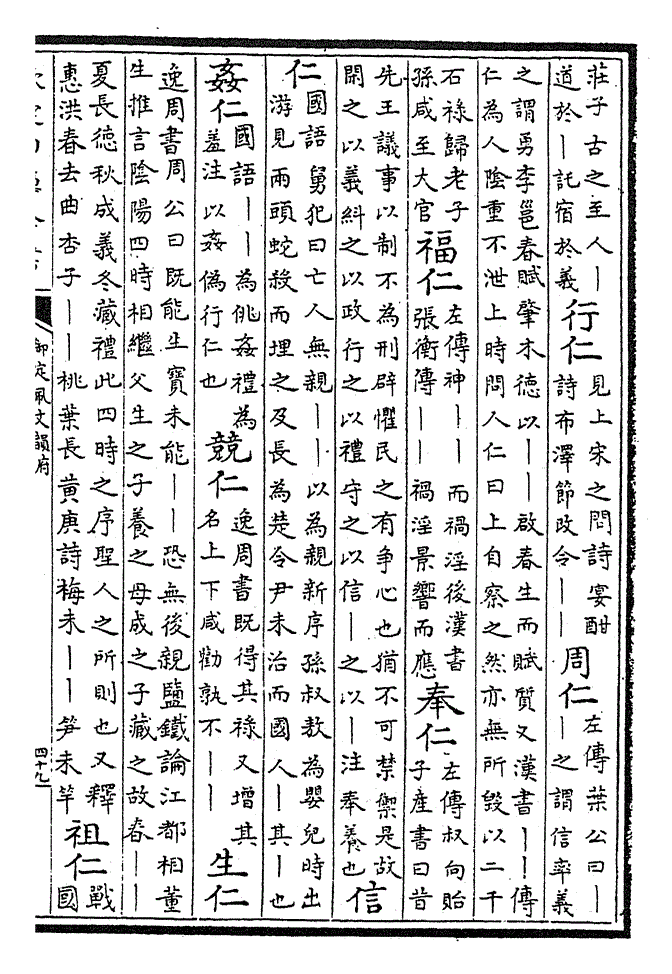 莊子古之至人｜
道於｜託宿於義
行仁
見上宋之問詩宴酣
詩布澤節政令｜｜
周仁
左傳葉公曰｜
｜之謂信率義
之謂勇李邕春賦肇木德以｜｜啟春生而賦質又漢書｜｜傳
仁為人陰重不泄上時問人仁曰上自察之然亦無所毀以二千
石祿歸老子
孫咸至大官
福仁
左傳神｜｜而禍淫後漢書
張衡傳｜｜禍淫景響而應
奉仁
左傳叔向貽
子產書曰昔
先王議事以制不為刑辟懼民之有争心也猶不可禁禦是故
閑之以義糾之以政行之以禮守之以信｜之以｜注奉養也
信
仁
國語舅犯曰亡人無親｜｜以為親新序孫叔敖為嬰兒時出
游見兩頭蛇殺而埋之及長為楚令尹未治而國人｜其｜也
姦仁
國語｜｜為佻姦禮為
羞注以姦偽行仁也
競仁
逸周書既得其祿又增其
名上下咸勸孰不｜｜
生仁
逸周書周公曰既能生寶未能｜｜恐無後親鹽鐵論江都相董
生推言陰陽四時相繼父生之子養之母成之子藏之故春｜｜
夏長德秋成義冬藏禮此四時之序聖人之所則也又釋
惠洪春去曲杏子｜｜桃葉長黄庚詩梅未｜｜笋未竿
祖仁
戰
國
御定佩文韻府
四十九